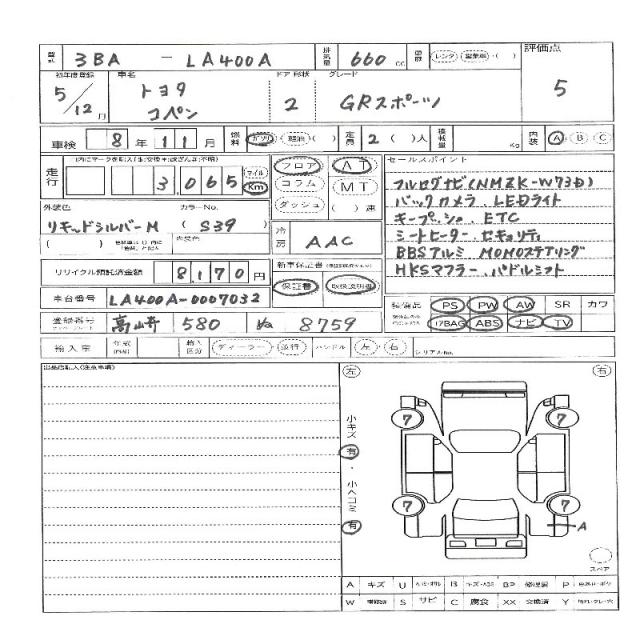 型式 3BA - LA400A 排気量 660 cc 用途 レンタ 営業車 ( ) 評価点
初年度登録 車名 ドア 形状 グレード
5/12月 トヨタ コペン 2 GRスポーツ 5
車検 8年11月 燃料 ガソリン 軽油 ( ) 定員 2 ( )人 積載量 Kg 内装 A B C
走行 3,065 マイル Km フロア コラム ダッシュ AT MT ( )速
外装色 カラーNo.
リキッドシルバーM (S39)
( ) 内装色
冷房 AAC
セールスポイント
フルセグナビ(NMZK-W73D)
バックカメラ、LEDライト
キープッシュ、ETC
シートヒーター、セキュリティ
BBSアルミ MOMOステアリング
HKSマフラー、パドルシフト
リサイクル預託済金額 8,170円 新車保証書
保証書 取扱説明書
車台番号 LA400A-0007032
装備品 PS PW AW SR カワ
I7BAG ABS ナビ TV
登録番号 高崎 580 ぬ 8759
輸入車 年式 輸入区分 ディーラー 並行 ハンドル 左 右 シリアルNo.
出品店記入(注意事項)
左 右
小キズ 有 ・ 小ヘコミ 有
7 7
7 7
A
スペア
A キズ U B BP P
W S サビ C 腐食 XX 交換済 Y